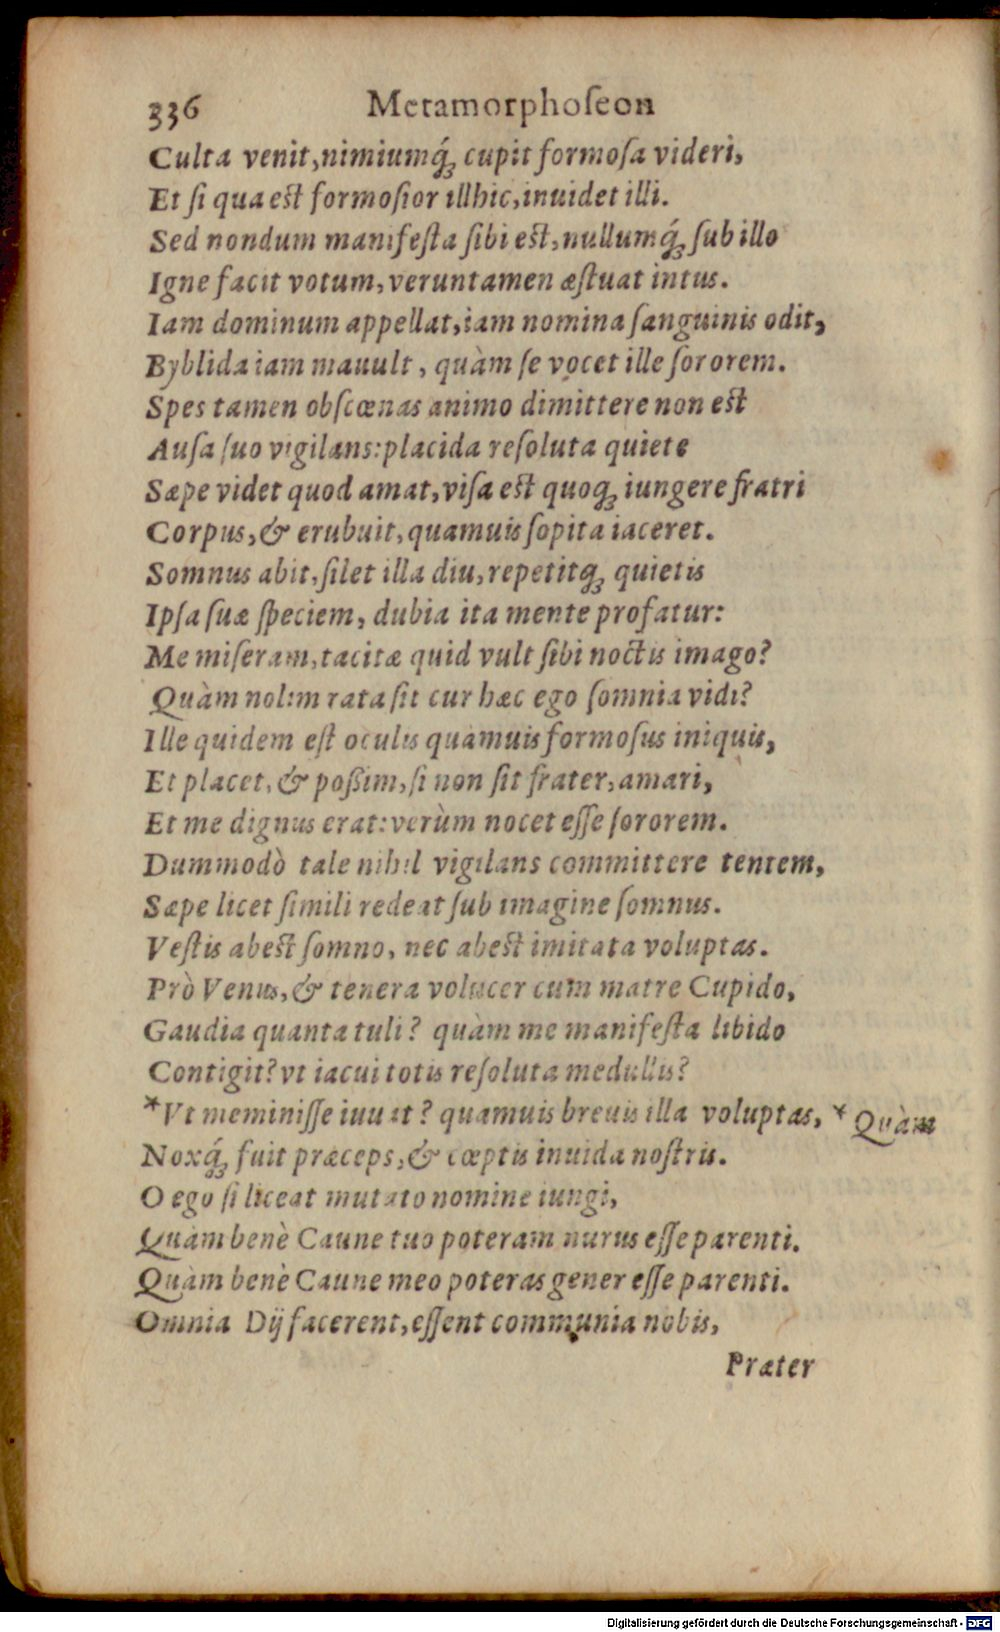 336 Metamorphoſeon
Culta venit, nimiumq́; cupit formoſa videri,
Et ſi qua eſt formoſior illhic, inuidet illi.
Sed nondum manifeſta ſibi eſt, nullumq́; ſub illo
Igne facit votum, veruntamen æſtuat intus.
Iam dominum appellat, iam nomina ſanguinis odit,
Byblida iam mauult, quàm ſe vocet ille ſororem.
Spes tamen obſcœnas animo dimittere non eſt
Auſa ſuo vigilans: placida reſoluta quiete
Sæpe videt quod amat, viſa eſt quoq; iungere fratri
Corpus, & erubuit, quamuis ſopita iaceret.
Somnus abit, ſilet illa diu, repetitq; quietis
Ipſa ſuæ ſpeciem, dubia ita mente profatur:
Me miſeram, tacitæ quid vult ſibi noctis imago?
Quàm nolim rata ſit cur hæc ego ſomnia vidi?
Ille quidem eſt oculis quamuis formoſus iniquis,
Et placet, & poßim, ſi non ſit frater, amari,
Et me dignus erat: verùm nocet eſſe ſororem.
Dummodò tale nihil vigilans committere tentem,
Sæpe licet ſimili redeat ſub imagine ſomnus.
Veſtis abeſt ſomno, nec abeſt imitata voluptas.
Prò Venus, & tenera volucer cum matre Cupido,
Gaudia quanta tuli? quàm me manifeſta libido
Contigit? vt iacui totis reſoluta medullis?
*Vt meminiſſe iuuat? quamuis breuis illa voluptas, * Quàm
Noxq́; fuit præceps, & cœptis inuida noſtris.
O ego ſi liceat mutato nomine iungi,
Quàm benè Caune tuo poteram nurus eſſe parenti.
Quàm benè Caune meo poteras gener eſſe parenti.
Omnia Dij facerent, eſſent communia nobis,
Præter
Digitalisierung gefördert durch die Deutsche Forschungsgemeinschaft - DFG